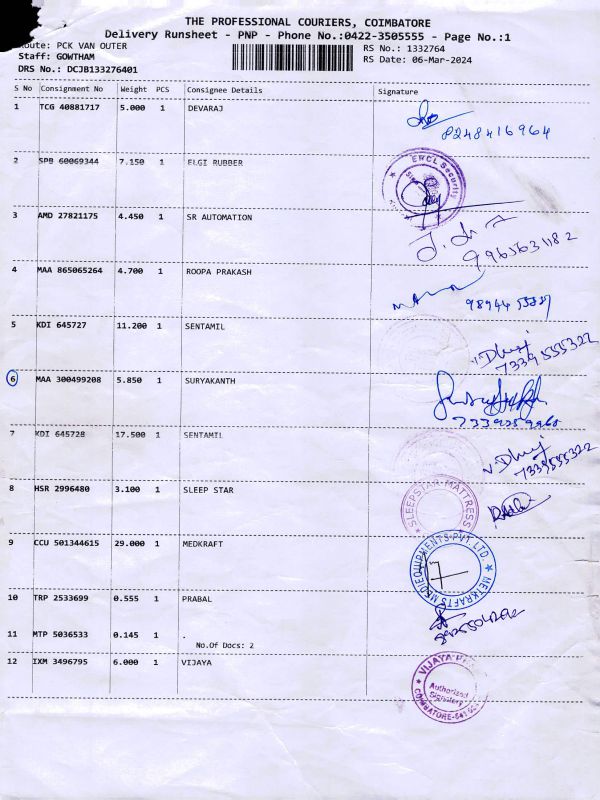 THE PROFESSIONAL COURIERS, COIMBATORE
Delivery Runsheet - PNP - Phone No.:0422-3505555 - Page No.:1
Route: PCK VAN OUTER
RS No.: 1332764
Staff: GOWTHAM
RS Date: 06-Mar-2024
DRS No.: DCJB133276401
S No Consignment No Weight PCS Consignee Details Signature
1 TCG 40881717 5.000 1 DEVARAJ
8248416964
2 SPB 60069344 7.150 1 ELGI RUBBER
ERCL Security
3 AMD 27821175 4.450 1 SR AUTOMATION
4 MAA 865065264 4.700 1 ROOPA PRAKASH
5 KDI 645727 11.200 1 SENTAMIL
7339555322
6 MAA 300499208 5.850 1 SURYAKANTH
7 KDI 645728 17.500 1 SENTAMIL
7339555322
8 HSR 2996480 3.100 1 SLEEP STAR
SLEEPSTAR MATTRESS
9 CCU 501344615 29.000 1 MEDKRAFT
METKRAFTS MEDIEQUIPMENTS PVT. LTD.
10 TRP 2533699 0.555 1 PRABAL
11 MTP 5036533 0.145 1 .
No.Of Docs: 2
12 IXM 3496795 6.000 1 VIJAYA
VIJAYA
Authorized
Signatory
COIMBATORE-641